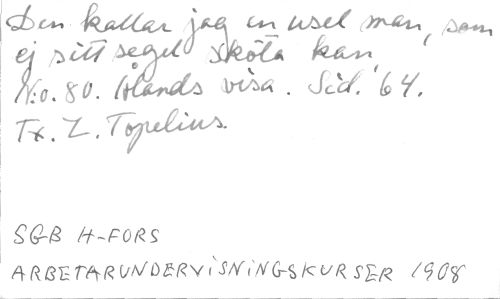 Den kallar jag en usel man, som
ej sitt segel sköta kan
N:o. 80. Ålands visa. Sid. 64.
Tx. Z. Topelius.
SGB H-FORS
ARBETARUNDERVISNINGSKURSER 1908